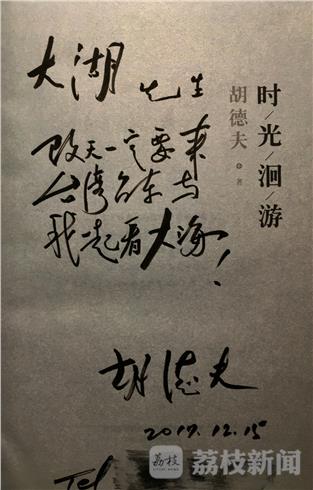 大湖 先生
改天一定要来
台湾台东与
我一起看大海！
胡德夫
2017.12.15
Tel
时/光/洄/游
胡德夫 著
荔枝
荔枝新闻